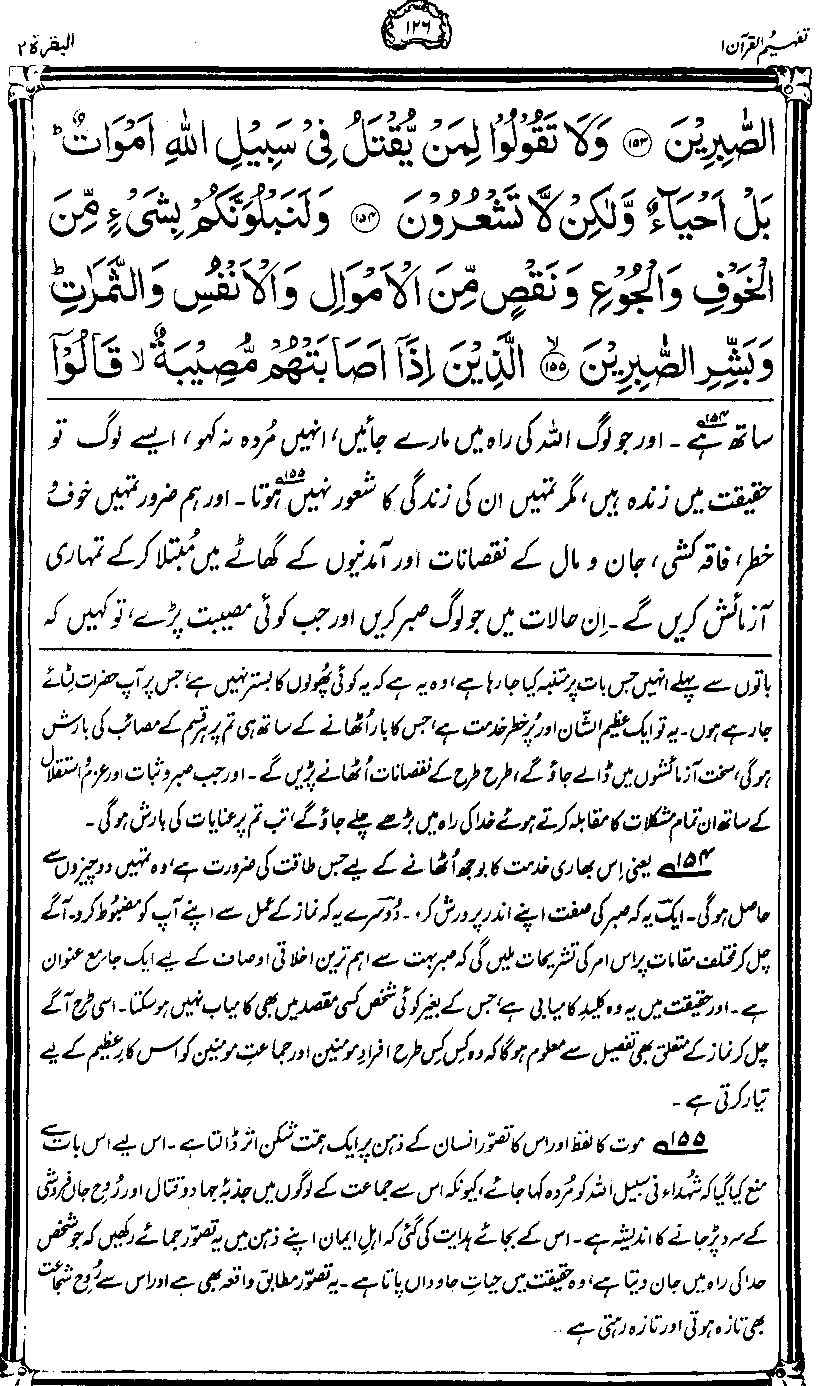 تفہیم القرآن ۱
۱۲۶
البقرۃ ۲
الصّٰبِرِیْنَ ۝۱۵۳ وَلَا تَقُوْلُوْا لِمَنْ یُّقْتَلُ فِیْ سَبِیْلِ اللّٰهِ اَمْوَاتٌ ؕ
بَلْ اَحْیَآءٌ وَّلٰکِنْ لَّا تَشْعُرُوْنَ ۝۱۵۴ وَلَنَبْلُوَنَّکُمْ بِشَیْءٍ مِّنَ
الْخَوْفِ وَالْجُوْعِ وَنَقْصٍ مِّنَ الْاَمْوَالِ وَالْاَنْفُسِ وَالثَّمَرٰتِ ؕ
وَبَشِّرِ الصّٰبِرِیْنَ ۝۱۵۵ ۙ الَّذِیْنَ اِذَآ اَصَابَتْهُمْ مُّصِیْبَةٌ ۙ قَالُوْٓا
ساتھ ہے۱۵۴۔ اور جو لوگ اللہ کی راہ میں مارے جائیں، انہیں مُردہ نہ کہو، ایسے لوگ تو
حقیقت میں زندہ ہیں، مگر تمہیں ان کی زندگی کا شعور نہیں ہوتا۱۵۵۔ اور ہم ضرور تمہیں خوف و
خطر، فاقہ کشی، جان و مال کے نقصانات اور آمدنیوں کے گھاٹے میں مُبتلا کر کے تمہاری
آزمائش کریں گے۔ اِن حالات میں جو لوگ صبر کریں اور جب کوئی مصیبت پڑے، تو کہیں کہ
باتوں سے پہلے انہیں جس بات پر متنبہ کیا جا رہا ہے، وہ یہ ہے کہ یہ کوئی پھُولوں کا بستر نہیں ہے، جس پر آپ حضرات لِٹائے
جا رہے ہوں۔ یہ تو ایک عظیم الشّان اور پُر خطر خدمت ہے، جس کا بار اُٹھانے کے ساتھ ہی تم پر ہر قسم کے مصائب کی بارش
ہوگی، سخت آزمائشوں میں ڈالے جاؤ گے، طرح طرح کے نقصانات اُٹھانے پڑیں گے۔ اور جب صبر و ثبات اور عزم و استقلال
کے ساتھ ان تمام مشکلات کا مقابلہ کرتے ہوئے خدا کی راہ میں بڑھے چلے جاؤ گے، تب تم پر عنایات کی بارش ہوگی۔
۱۵۴ یعنی اِس بھاری خدمت کا بوجھ اُٹھانے کے لیے جس طاقت کی ضرورت ہے، وہ تمہیں دو چیزوں سے
حاصل ہوگی۔ ایک یہ کہ صبر کی صفت اپنے اندر پرورش کرو۔ دُوسرے یہ کہ نماز کے عمل سے اپنے آپ کو مضبوط کرو۔ آگے
چل کر مختلف مقامات پر اس امر کی تشریحات ملیں گی کہ صبر بہت سے اہم ترین اخلاقی اوصاف کے لیے ایک جامع عنوان
ہے۔ اور حقیقت میں یہ وہ کلیدِ کامیابی ہے، جس کے بغیر کوئی شخص کسی مقصد میں بھی کامیاب نہیں ہو سکتا۔ اسی طرح آگے
چل کر نماز کے متعلق بھی تفصیل سے معلوم ہوگا کہ وہ کِس کِس طرح افرادِ مومنین اور جماعتِ مومنین کو اس کارِ عظیم کے لیے
تیار کرتی ہے۔
۱۵۵ موت کا لفظ اور اس کا تصوّر انسان کے ذہن پر ایک ہمّت شکن اثر ڈالتا ہے۔ اس لیے اس بات سے
منع کیا گیا کہ شُہداء فی سبیل اللہ کو مُردہ کہا جائے، کیونکہ اس سے جماعت کے لوگوں میں جذبۂ جہاد و قتال اور رُوحِ جاں فروشی
کے سرد پڑ جانے کا اندیشہ ہے۔ اس کے بجائے ہدایت کی گئی کہ اہلِ ایمان اپنے ذہن میں یہ تصوّر جمائے رکھیں کہ جو شخص
خدا کی راہ میں جان دیتا ہے، وہ حقیقت میں حیاتِ جاوداں پاتا ہے۔ یہ تصوّر مطابقِ واقعہ بھی ہے اور اس سے رُوحِ شجاعت
بھی تازہ ہوتی اور تازہ رہتی ہے۔